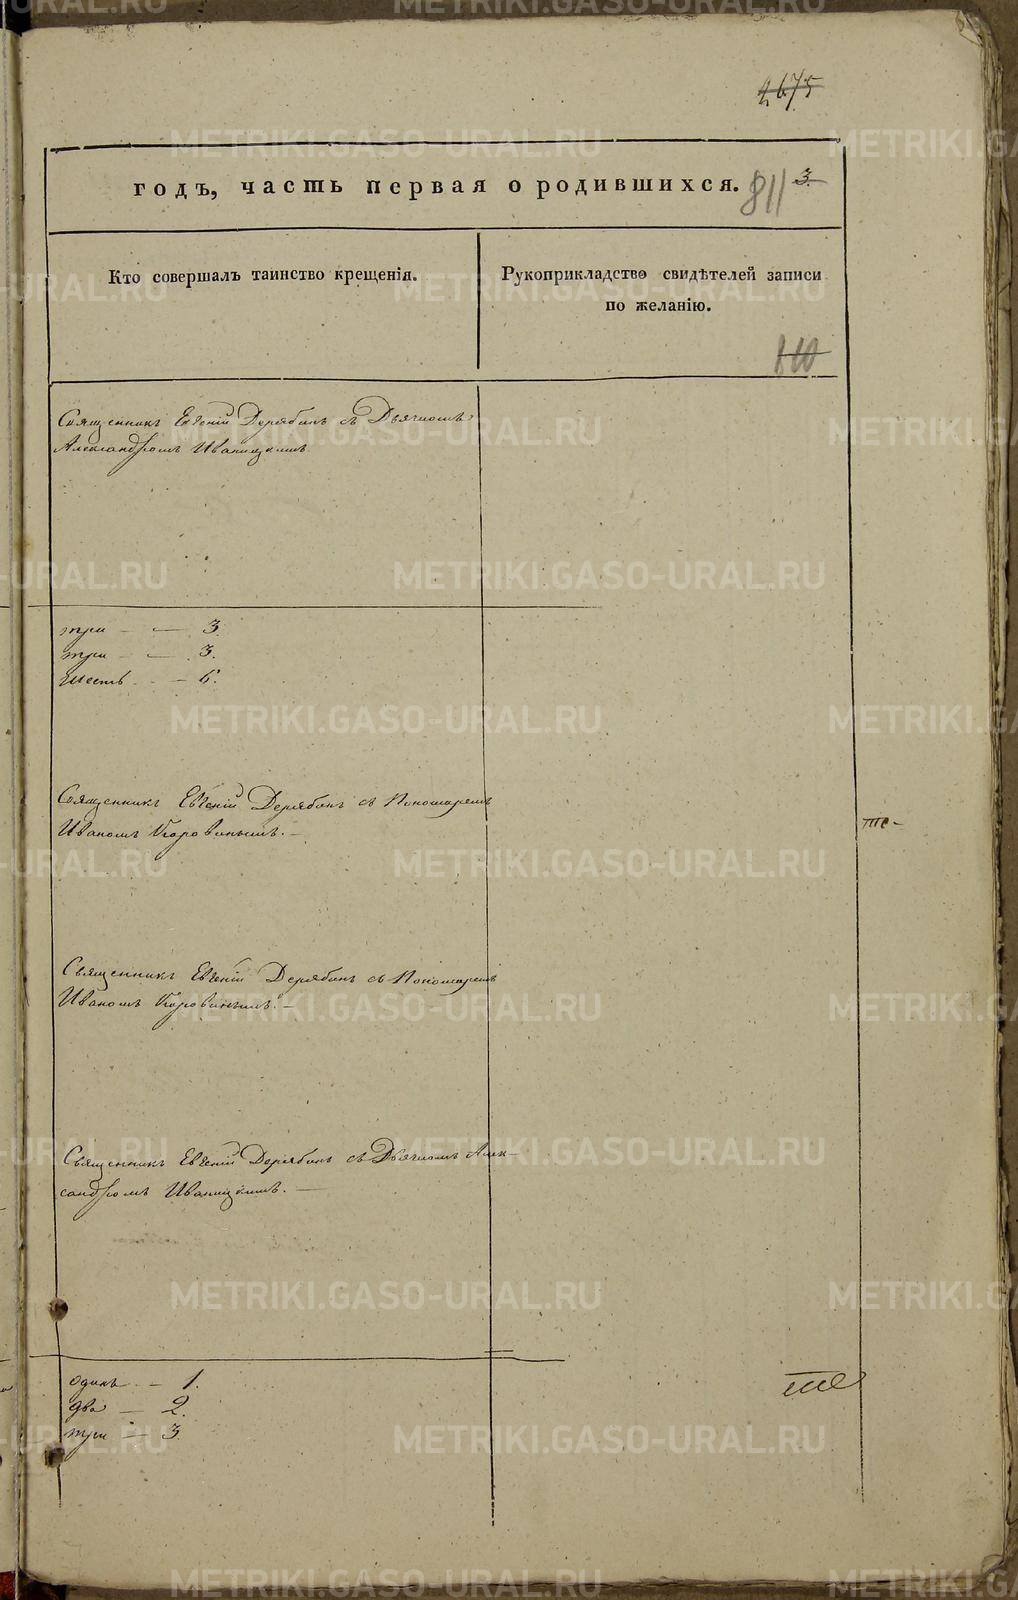 2675
годъ, часть первая о родившихся.
811
3.
Кто совершалъ таинство крещенія.
Рукоприкладство свидѣтелей записи
по желанію.
810
Священникъ Евгеній Дерябинъ съ Дьячкомъ
Александромъ Иваницкимъ
три — — 3.
три — — 3.
шесть — — 6.
Священникъ Евгеній Дерябинъ съ Пономаремъ
Иваномъ Коровинымъ. —
Священникъ Евгеній Дерябинъ съ Пономаремъ
Иваномъ Коровинымъ. —
Священникъ Евгеній Дерябинъ съ Дьячкомъ Алек-
сандромъ Иваницкимъ. —
одинъ — 1.
два — 2.
три — 3.
METRIKI.GASO-URAL.RU